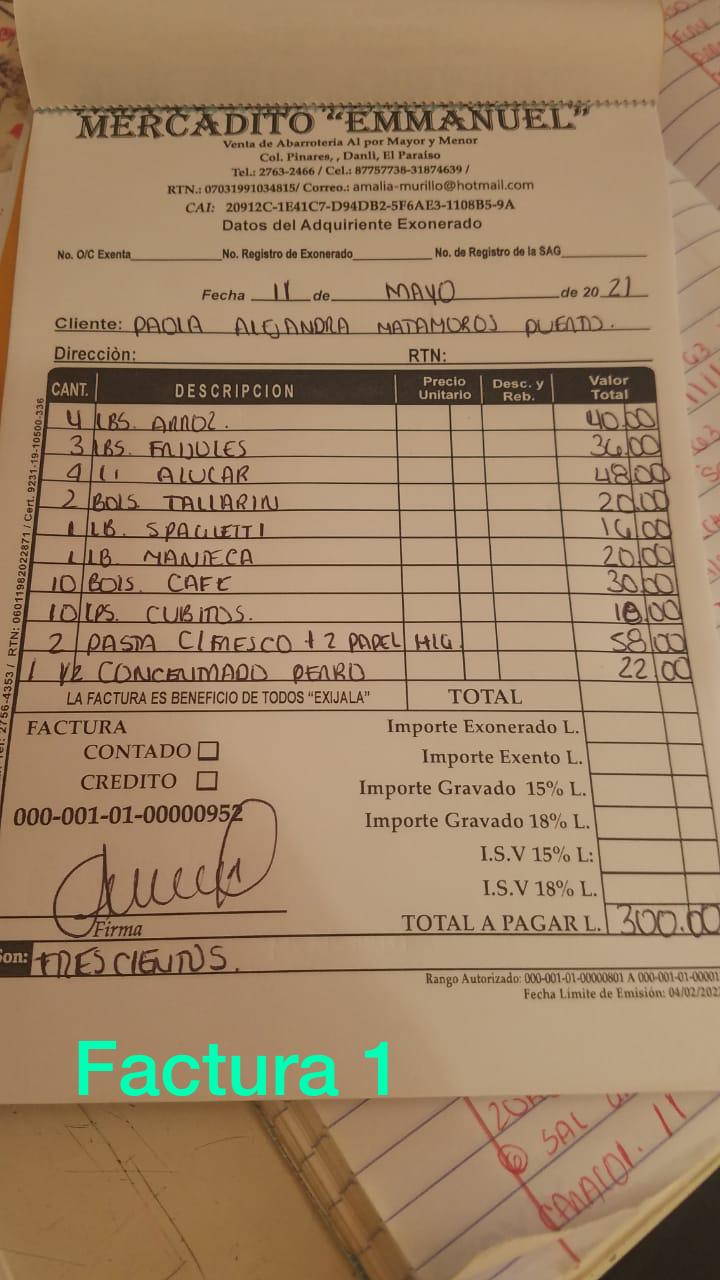 MERCADITO "EMMANUEL"
Venta de Abarroteria Al por Mayor y Menor
Col. Pinares, , Danli, El Paraíso
Tel.: 2763-2466 / Cel.: 87757738-31874639 /
RTN.: 07031991034815/ Correo.: amalia-murillo@hotmail.com
CAI: 20912C-1E41C7-D94DB2-5F6AE3-1108B5-9A
Datos del Adquiriente Exonerado
No. O/C Exenta No. Registro de Exonerado No. de Registro de la SAG
Fecha 11 de MAYO de 20 21
Cliente: PAOLA ALEJANDRA MATAMOROS
Direcciòn: RTN:
CANT. DESCRIPCION Precio Unitario Desc. y Reb. Valor Total
4 LBS. ARROZ. 40.00
3 LBS. FRIJOLES 36.00
4 LI AZUCAR 48.00
2 BOLS TALLARIN 20.00
1 LB. SPAGUETTI 16.00
1 LB. MANTECA 20.00
10 BOLS. CAFE 30.00
10 CUBITOS. 10.00
2 PASTA C/FRESCO + 2 PAPEL HIG. 58.00
1 1/2 CONCENTRADO PERRO 22.00
LA FACTURA ES BENEFICIO DE TODOS "EXIJALA" TOTAL
FACTURA
CONTADO
CREDITO
000-001-01-00000952
Firma
Importe Exonerado L.
Importe Exento L.
Importe Gravado 15% L.
Importe Gravado 18% L.
I.S.V 15% L:
I.S.V 18% L.
TOTAL A PAGAR L. 300.00
Son: TRESCIENTOS.
Rango Autorizado: 000-001-01-00000801 A 000-001-01-00001
Fecha Límite de Emisión: 04/02/202
2756-4353 / RTN: 06011982022871 / Cert. 9231-19-10500-336
Factura 1
SAL